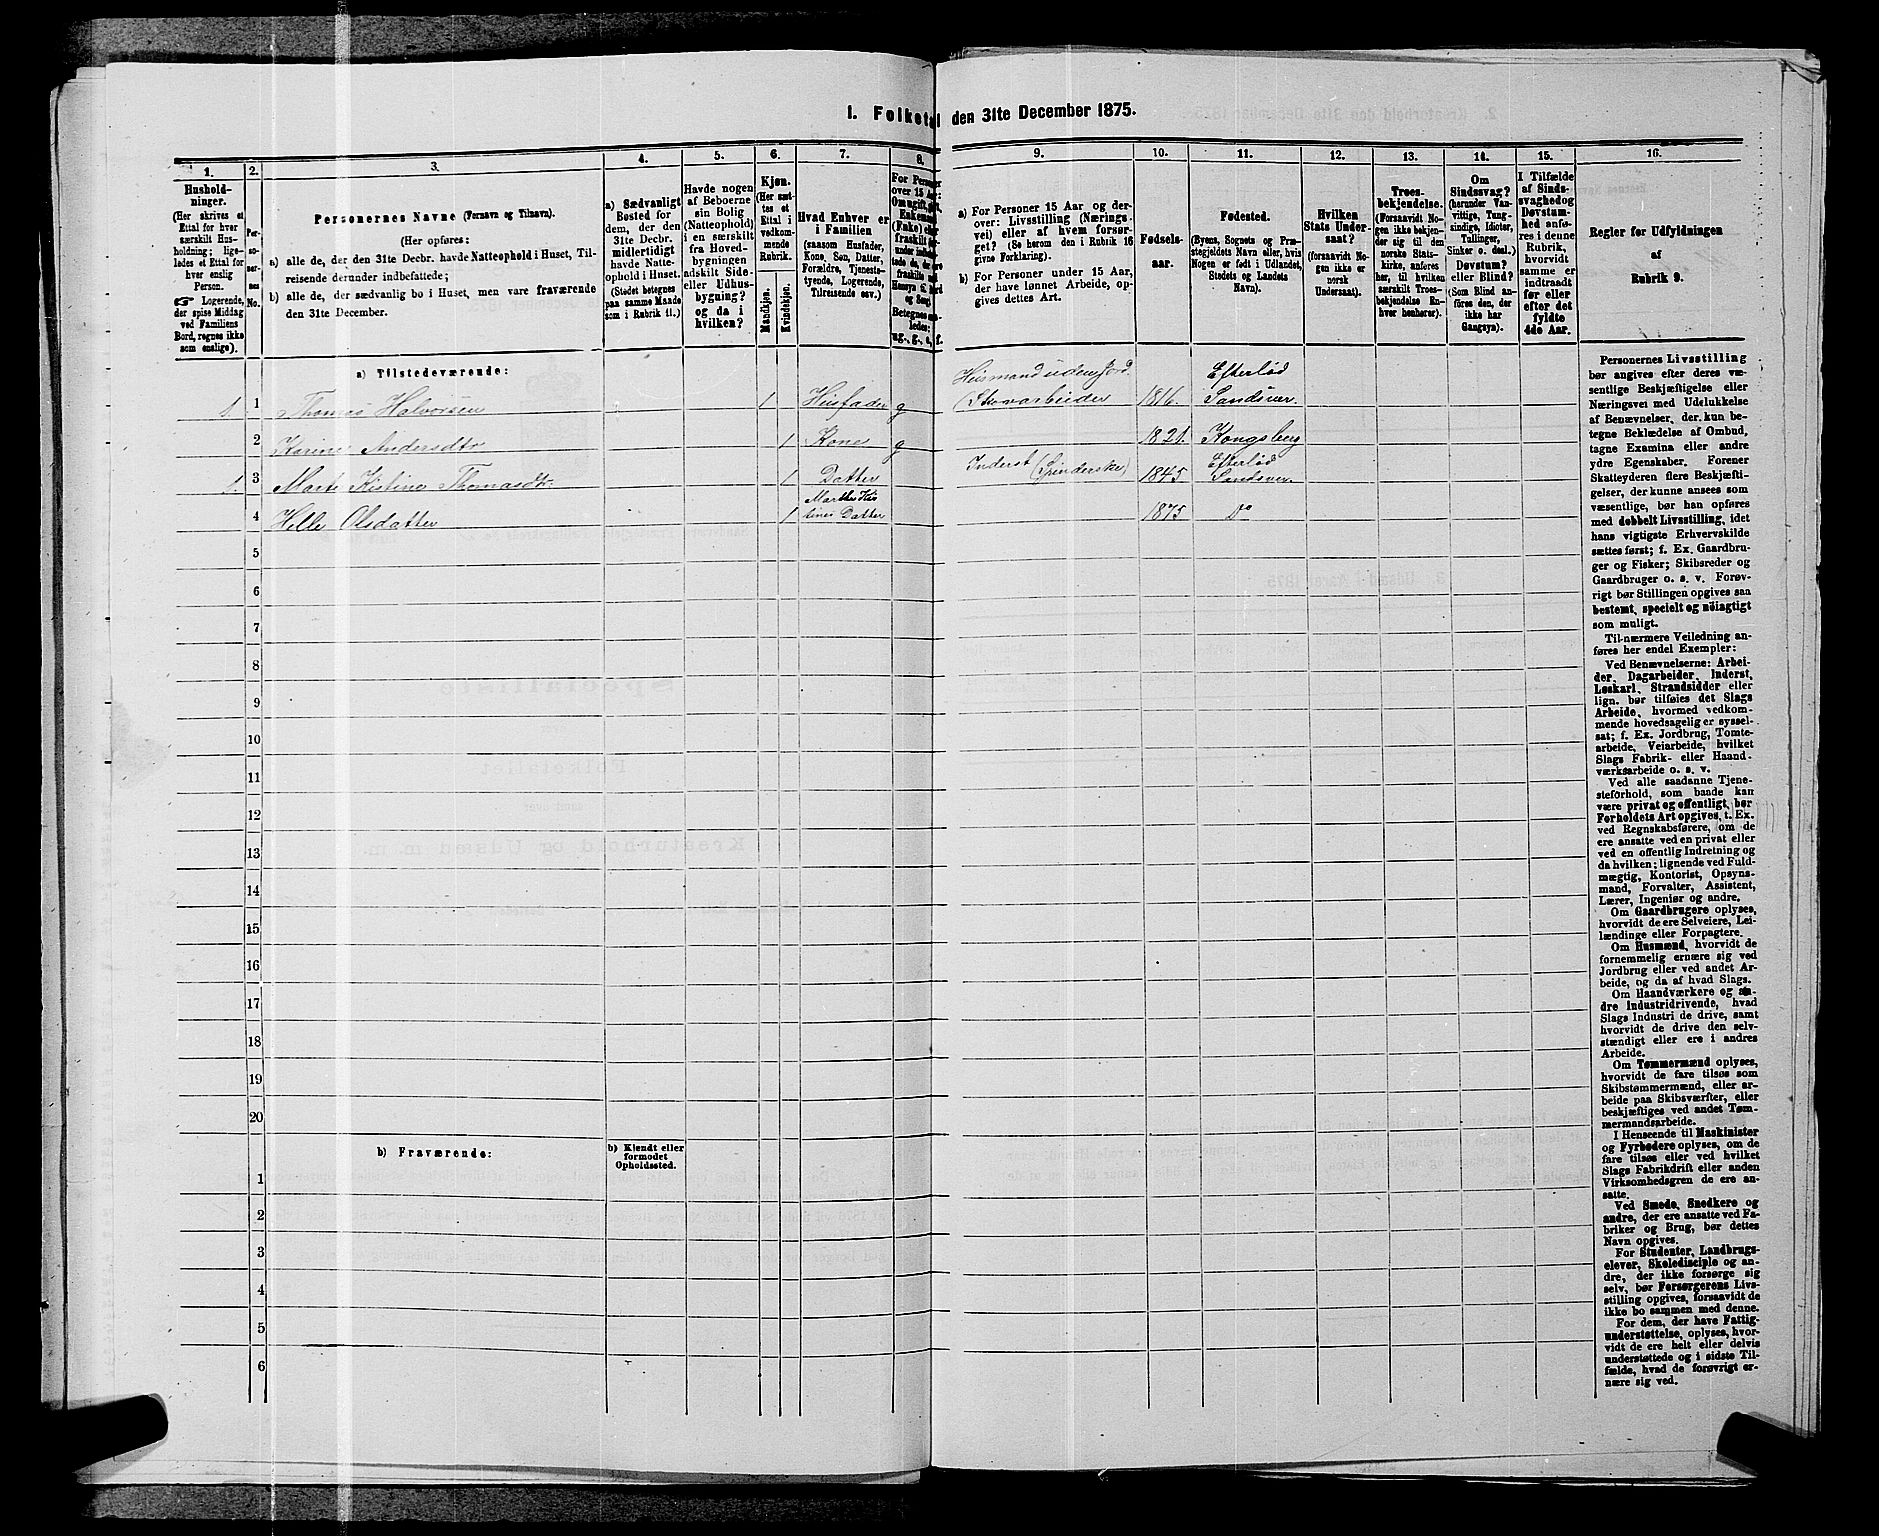 1. Folketal den 31te December 1875.
1.
2.
3.
4.
5.
6.
7.
8.
9.
10.
11.
12.
13.
14.
15.
16.
Hushold-
ninger.
(Her skrives et
Ettal for hver
særskilt Hus-
holdning; lige-
ledes et Ettal for
hver enslig
Person.
☞ Logerende,
der spise Middag
ved Familiens
Bord, regnes ikke
som enslige).
Per-
so-
ner-
nes
No.
Personernes Navne (Fornavn og Tilnavn).
(Her opføres:
a) alle de, der den 31te Decbr. havde Natteophold i Huset, Til-
reisende derunder indbefattede;
b) alle de, der sædvanlig bo i Huset, men vare fraværende
den 31te December.
a) Sædvanligt
Bosted for
dem, der den
31te Decbr.
midlertidigt
havde Natte-
ophold i Huset.
(Stedet betegnes
paa samme Maade
som i Rubrik 11.)
Havde nogen
af Beboerne
sin Bolig
(Natteophold)
i en særskilt
fra Hoved-
bygningen
adskilt Side-
eller Udhus-
bygning?
og da i
hvilken?
Kjøn.
(Her sæt-
tes et
Ettal i
vedkom-
mende
Rubrik.
Mandkjøn.
Kvindekjøn.
Hvad Enhver er
i Familien
(saasom Husfader,
Kone, Søn, Datter,
Forældre, Tjeneste-
tyende, Logerende,
Tilreisende osv.)
For Personer
over 15 Aar:
Betegnes saa-
ledes:
ug., g., e., f.
a) For Personer 15 Aar og der-
over: Livsstilling (Nærings-
vei) eller af hvem forsør-
get? (Se herom den i Rubrik 16
givne Forklaring).
b) For Personer under 15 Aar,
der have lønnet Arbeide, op-
gives dettes Art.
Fødsels-
aar.
Fødested.
(Byens, Sognets og Præ-
stegjeldets Navn eller, hvis
Nogen er født i Udlandet,
Stedets og Landets
Navn).
Hvilken
Stats Under-
saat?
(forsaavidt No-
gen ikke er
norsk
Undersaat).
Troes-
bekjendelse.
(Forsaavidt No-
gen ikke bekjen-
der sig til den
norske Stats-
kirke, anføres
her, til hvilken
særskilt Troes-
bekjendelse En-
hver henhører).
Om
Sindssvag?
(herunder Van-
vittige, Tung-
sindige, Idioter,
Tullinger,
Sinker o. desl.)
Døvstum?
eller Blind?
(Som Blind an-
føres den, der
ikke har
Gangsyn).
I Tilfælde
af Sinds-
svaghed og
Døvstum-
hed anføres
i denne
Rubrik,
hvorvidt
samme er
indtraadt
før eller
efter det
fyldte
4de Aar.
Regler for Udfyldningen
af
Rubrik 9.
a) Tilstedeværende:
1. 1 Thomas Halvorsen 1 Husfader g Husmand uden Jord (Skovarbeider 1816. Efterlød Sandsver.
2 Karine Andersdtr 1 Kone g 1821. Kongsberg
1. 3 Marte Kistine Thomasdtr. 1 Datter Inderst (Spinderske) 1845 Efterlød Sandsver.
4 Helle Olsdatter 1 Marthe Kistines Datter 1875 Do
5
6
7
8
9
10
11
12
13
14
15
16
17
18
19
20
b) Fraværende:
b) Kjendt eller
formodet
Opholdssted.
1
2
3
4
5
6
Personernes Livsstilling
bør angives efter deres væ-
sentlige Beskjæftigelse eller
Næringsvei med Udelukkelse
af Benævnelser, der kun be-
tegne Bekledelse af Ombud,
tagne Examina eller andre
ydre Egenskaber. Forener
Skatteyderen flere Beskjæfti-
gelser, der kunne ansees som
væsentlige, bør han opføres
med dobbelt Livsstilling, idet
hans vigtigste Erhvervskilde
sættes først; f. Ex. Gaardbru-
ger og Fisker; Skibsreder og
Gaardbruger o. s. v. Forøv-
rigt bør Stillingen opgives saa
bestemt, specielt og nøiagtigt
som muligt.
Til nærmere Veiledning an-
føres her endel Exempler:
Ved Benævnelserne: Arbei-
der, Dagarbeider, Inderst,
Løskarl, Strandsidder eller
lign. bør tilføies det Slags
Arbeide, hvormed vedkom-
mende hovedsagelig er syssel-
sat; f. Ex. Jordbrug, Tomte-
arbeide, Veiarbeide, hvilket
Slags Fabrik- eller Haand-
værksarbeide o. s. v.
Ved alle saadanne Tjene-
steforhold, som baade kan
være privat og offentligt, bør
Forholdets Art opgives, t. Ex.
ved Regnskabsførere, om de
ere ansatte ved en privat eller
ved en offentlig Indretning og
da hvilken; lignende ved Fuld-
mægtig, Kontorist, Opsyns-
mand, Forvalter, Assistent,
Lærer, Ingeniør og andre.
Om Gaardbrugere oplyses,
hvorvidt de ere Selveiere, Lei-
lændinge eller Forpagtere.
Om Husmænd, hvorvidt de
fornemmelig ernære sig ved
Jordbrug eller ved andet Ar-
beide, og da af hvad Slags.
Om Haandværkere og an-
dre Industridrivende, hvad
Slags Industri de drive, samt
hvorvidt de drive den selv-
stændigt eller ere i andres
Arbeide.
Om Tømmermænd oplyses,
hvorvidt de fare tilsøs som
Skibstømmermænd, eller ar-
beide paa Skibsværfter, eller
beskjæftiges ved andet Tøm-
mermandsarbeide.
I Henseende til Maskinister
og Fyrbødere oplyses, om de
fare tilsøs eller ved hvilket
Slags Fabrikdrift eller anden
Virksomhedsgren de ere an-
satte.
Ved Smede, Snedkere og
andre, der ere ansatte ved Fa-
briker og Brug, bør dettes
Navn opgives.
For Studenter, Landbrugs-
elever, Skoledisciple og an-
dre, der ikke forsørge sig
selv, bør Forsørgerens Livs-
stilling opgives, forsaavidt de
ikke bo sammen med denne.
For dem, der have Fattig-
understøttelse, oplyses, hvor-
vidt de ere helt eller delvis
understøttede og i sidste Til-
fælde, hvad de forøvrigt er-
nære sig ved.